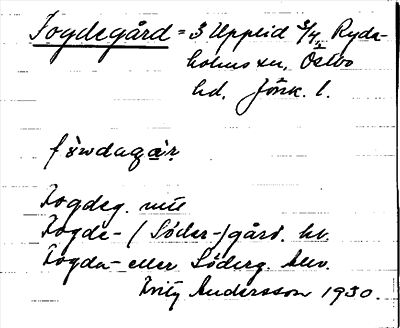 Fogdegård = 3 Upplid 3/4, Ryda-
holms sn, Östbo
hd. Jönk. l.
fo̤wdagạ̈r
Fogdeg. mtl
Fogde- (Söder-)gård. hv.
Fogda- eller Söderg. hv.
Fritz Andersson 1930.